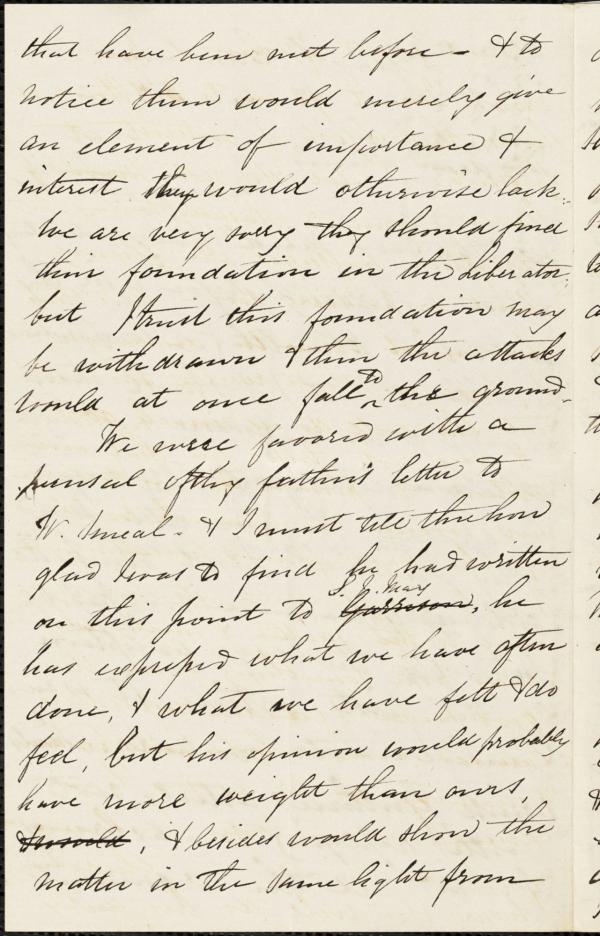 that have been met before - & to
notice them would merely give
an element of importance &
interest they would otherwise lack.
We are very sorry they should find
their foundation in the Liberator,
but I trust this foundation may
be withdrawn & then the attacks
would at once fall to the ground.
We were favored with a
perusal of thy father's letter to
W. Smeal - & I must tell thee how
glad I was to find he had written
on this point to S. J. May
Garrison, he
has expressed what we have often
done, & what we have felt & do
feel, but his opinion would probably
have more weight than ours,
& would, & besides would show the
matter in the same light from